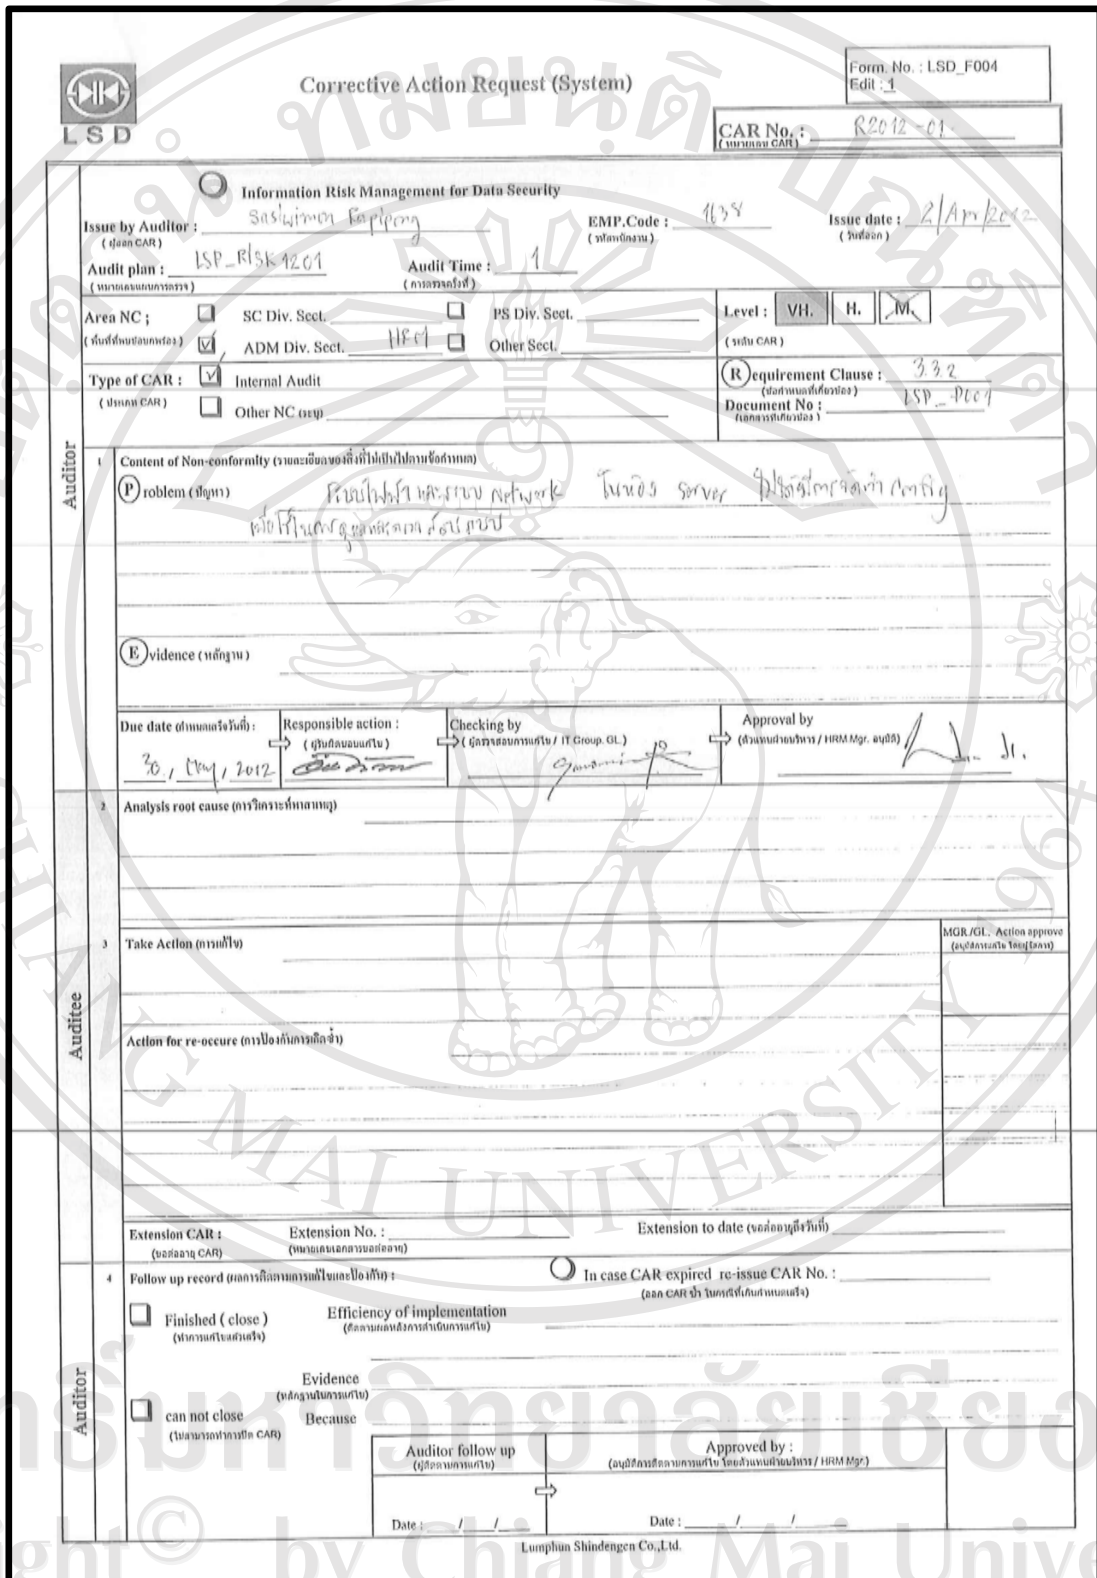 LSD
Corrective Action Request (System)
Form. No. : LSD_F004
Edit : 1
CAR No. : R2012-01
(หมายเลข CAR)
Information Risk Management for Data Security
Issue by Auditor :
(ผู้ออก CAR)
EMP.Code : 1638
(รหัสพนักงาน)
Issue date : 2/Apr/2012
(วันที่ออก)
Audit plan : LSP_RISK1201
(หมายเลขแผนการตรวจ)
Audit Time : 1
(การตรวจครั้งที่)
Area NC ;
(พื้นที่ที่พบข้อบกพร่อง)
SC Div. Sect.
PS Div. Sect.
ADM Div. Sect. HRM
Other Sect.
Level : VH. H. M.
(ระดับ CAR)
Type of CAR :
(ประเภท CAR)
Internal Audit
Other NC (ระบุ)
Requirement Clause : 3.3.2
(ข้อกำหนดที่เกี่ยวข้อง)
Document No :
(เอกสารที่เกี่ยวข้อง)
Auditor
1 Content of Non-conformity (รายละเอียดของสิ่งที่ไม่เป็นไปตามข้อกำหนด)
Problem (ปัญหา) ระบบไฟฟ้า และระบบ Network ในห้อง server config
Evidence (หลักฐาน)
Due date (กำหนดเสร็จวันที่) :
30, May, 2012
Responsible action :
(ผู้รับผิดชอบแก้ไข)
Checking by
(ผู้ตรวจสอบการแก้ไข / IT Group. GL)
Approval by
(ตัวแทนฝ่ายบริหาร / HRM Mgr. อนุมัติ)
2 Analysis root cause (การวิเคราะห์หาสาเหตุ)
3 Take Action (การแก้ไข)
MGR/GL. Action approve
Auditee
Action for re-occure (การป้องกันการเกิดซ้ำ)
Extension CAR :
(ขอต่ออายุ CAR)
Extension No. :
(หมายเลขเอกสารขอต่ออายุ)
Extension to date (ขอต่ออายุถึงวันที่)
4 Follow up record (ผลการติดตามการแก้ไขและป้องกัน) :
In case CAR expired re-issue CAR No. :
(ออก CAR ซ้ำ ในกรณีที่เกินกำหนดเสร็จ)
Finished ( close )
(ทำการแก้ไขแล้วเสร็จ)
Efficiency of implementation
(ติดตามผลหลังการดำเนินการแก้ไข)
Evidence
(หลักฐานในการแก้ไข)
can not close
(ไม่สามารถทำการปิด CAR)
Because
Auditor
Auditor follow up
(ผู้ติดตามการแก้ไข)
Approved by :
(อนุมัติการติดตามการแก้ไข โดยตัวแทนฝ่ายบริหาร / HRM Mgr.)
Date : / /
Date : / /
Lumphun Shindengen Co.,Ltd.
CHIANG MAI UNIVERSITY 1964
by Chiang Mai Unive